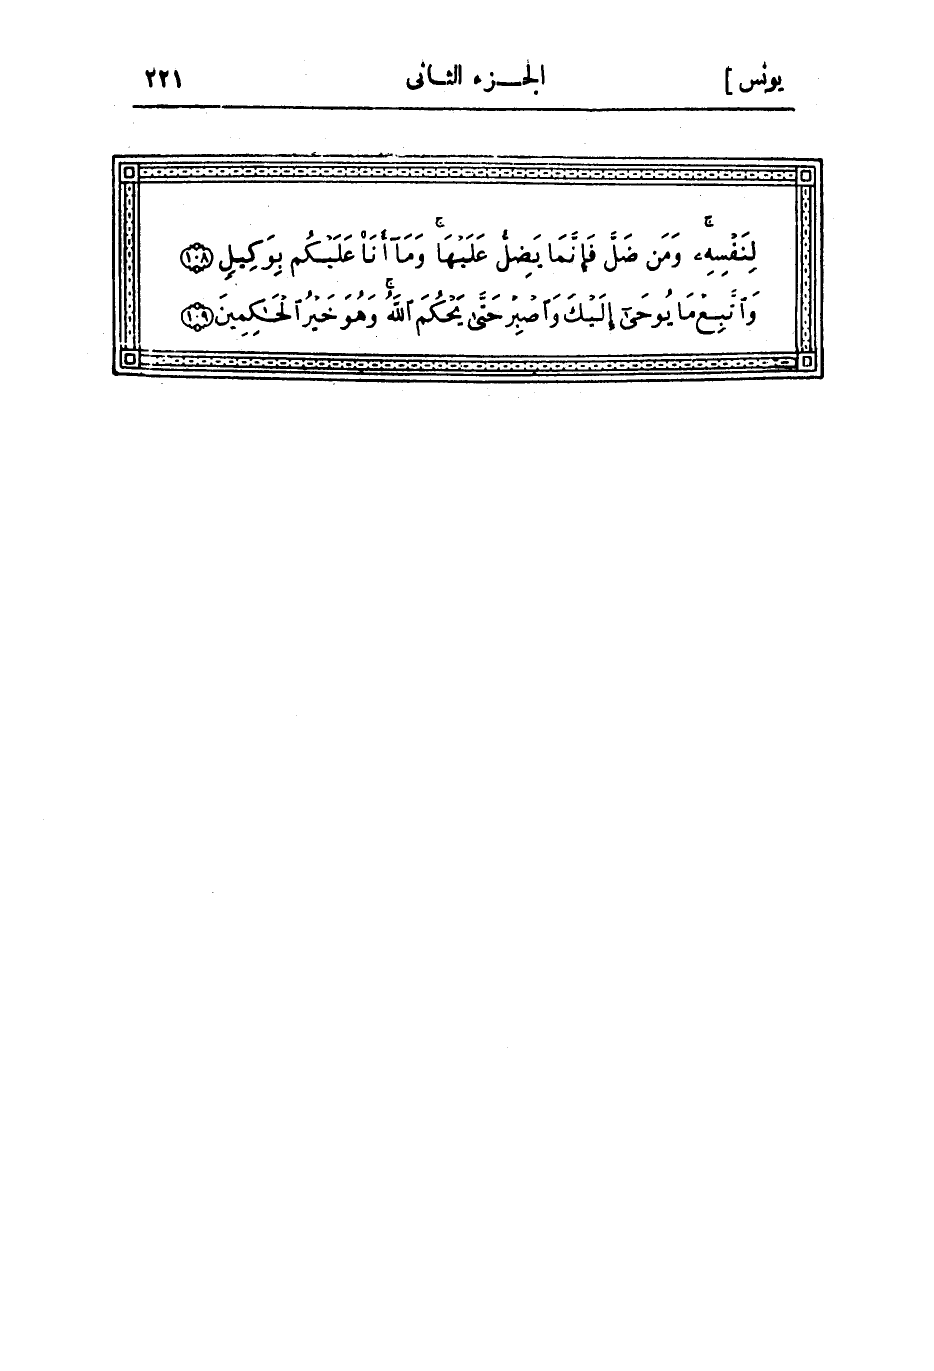 يونس ]
الجـــزء الثـانى
٢٢١
لِنَفْسِهِۦۚ وَمَن ضَلَّ فَإِنَّمَا يَضِلُّ عَلَيْهَاۚ وَمَآ أَنَا۠ عَلَيْكُم بِوَكِيلٍ ١٠٨
وَٱتَّبِعْ مَا يُوحَىٰٓ إِلَيْكَ وَٱصْبِرْ حَتَّىٰ يَحْكُمَ ٱللَّهُۚ وَهُوَ خَيْرُ ٱلْحَـٰكِمِينَ ١٠٩